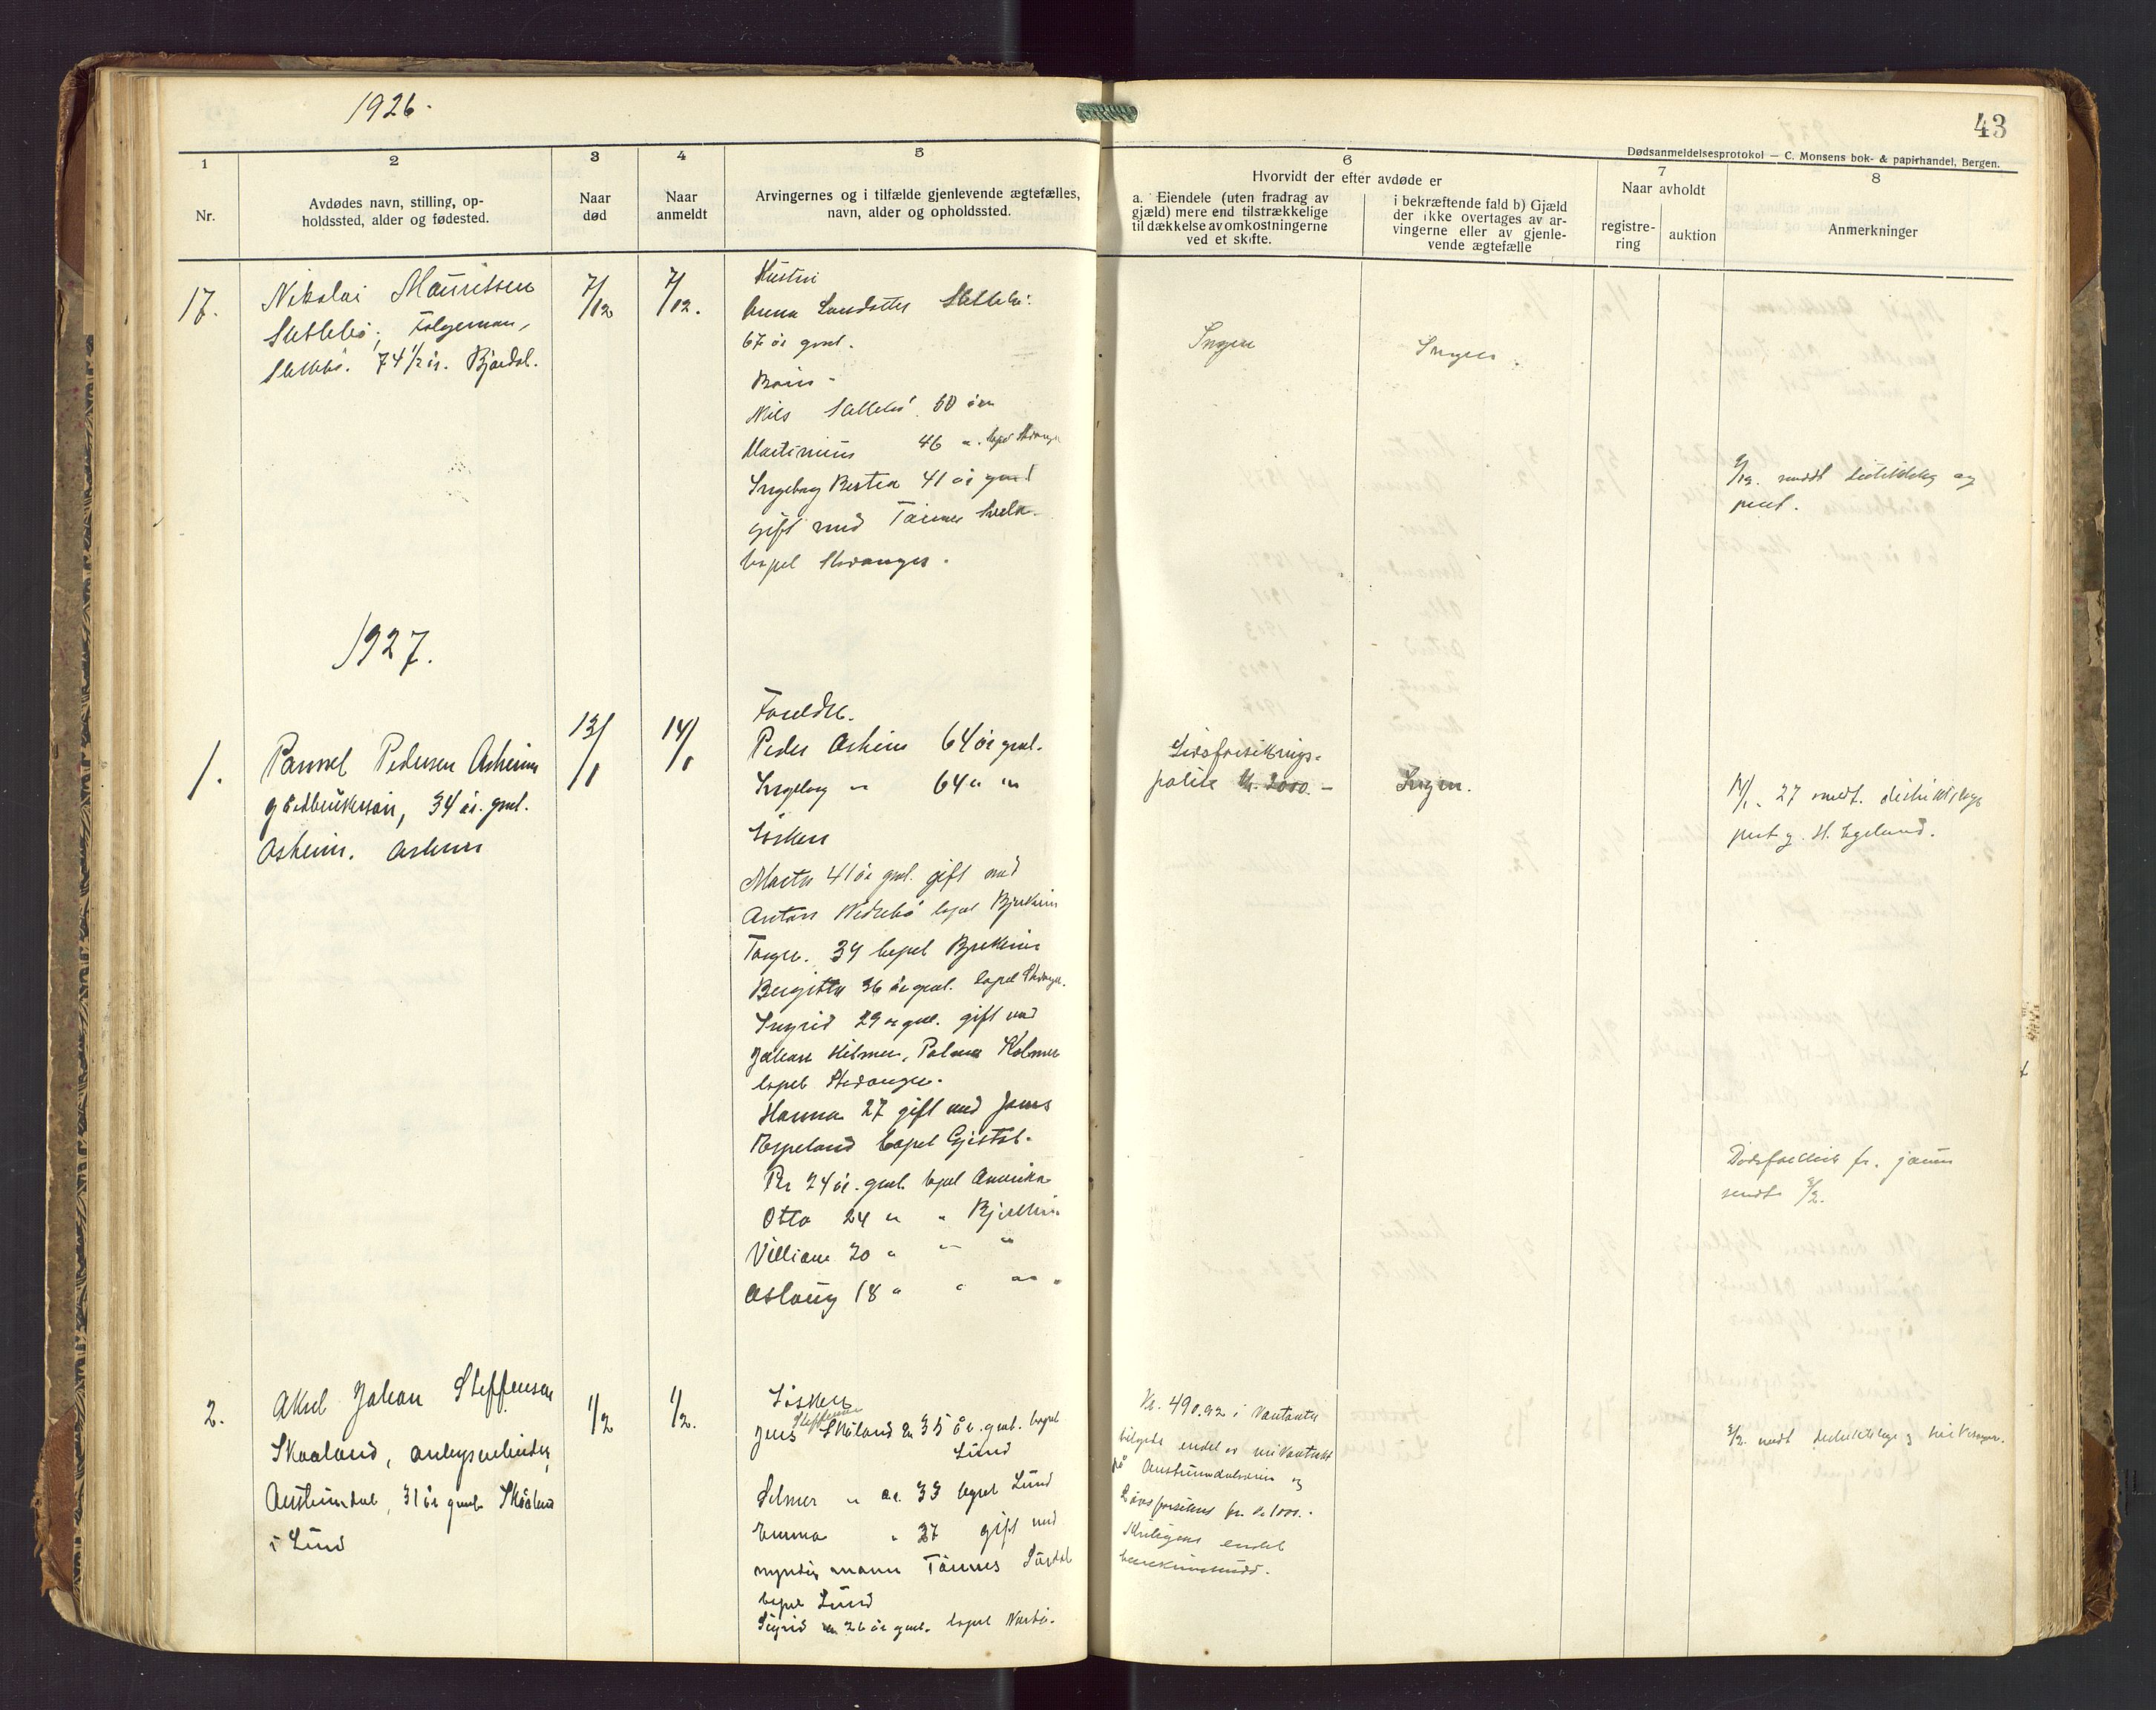 1926.
43
Dødsanmeldelsesprotokol — C. Monsens bok- & papirhandel, Bergen.
1
2
3
4
5
6
7
8
Nr.
Avdødes navn, stilling, op-
holdssted, alder og fødested.
Naar
død
Naar
anmeldt
Arvingernes og i tilfælde gjenlevende ægtefælles,
navn, alder og opholdssted.
Hvorvidt der efter avdøde er
a. Eiendele (uten fradrag av
gjæld) mere end tilstrækkelige
til dækkelse av omkostningerne
ved et skifte.
i bekræftende fald b) Gjæld
der ikke overtages av ar-
vingerne eller av gjenle-
vende ægtefælle
Naar avholdt
registre-
ring
auktion
Anmerkninger
17.
Nikolai Mauritsen
Slettebø, Følgeman,
Slettebø. 74 1/2 år. Bjordal.
7/12
7/12.
Hustru
Anna Slettebø
67 år gml.
Barn
Nils Slettebø 50 år
Martinius 46 "
Ingeborg Bertea 41 år
gift med Tønnes
bopel Stavanger.
Ingen
Ingen.
sendt
1927.
1.
Pedersen Asheim
gårdbruker, 34 år. gml.
Asheim. Asheim
13/1
14/1
Foreldre.
Peder Asheim 64 år gml.
Ingeborg " 64 " "
Søsken
Marta 41 år gml. gift med
Anton bopel Bjerkreim
Torger. 39 bopel Bjerkreim
Bergitta 36 år gml. bopel Stavanger.
Ingrid 29 år gml. gift med
Johan
bopel Stavanger.
Hanna 27 gift med Jens
Espeland bopel Gjesdal.
Per 24 år. gml. bopel Amerika
Otto 24 " " Bjerkreim
Villiam 20 " " "
Aslaug 18 " " " "
Livsforsikrings-
polise kr. 2000.-
Ingen.
14/1. 27 sendt.
H. Egeland.
Dødsfallslist fr. januar
sendt 3/2.
2.
Aksel Johan Steffensen
Skaaland, anlegsarbeider,
Austrumdal, 31 år gml. Skåland
i Lund
1/2
1/2.
Søsken
Steffensen
Jens Skåland 35 år. gml. bopel
Lund
Selmer " 33 bopel Lund
Emma " 27 gift med
myndig mann Tønnes
bopel Lund
Sigrid 26 år gml. bopel Nærbø.
Kr. 490.92 i kontanter
på Austrumdal og
Livsforsikret for kr 1000.-
endel
3/2. sendt